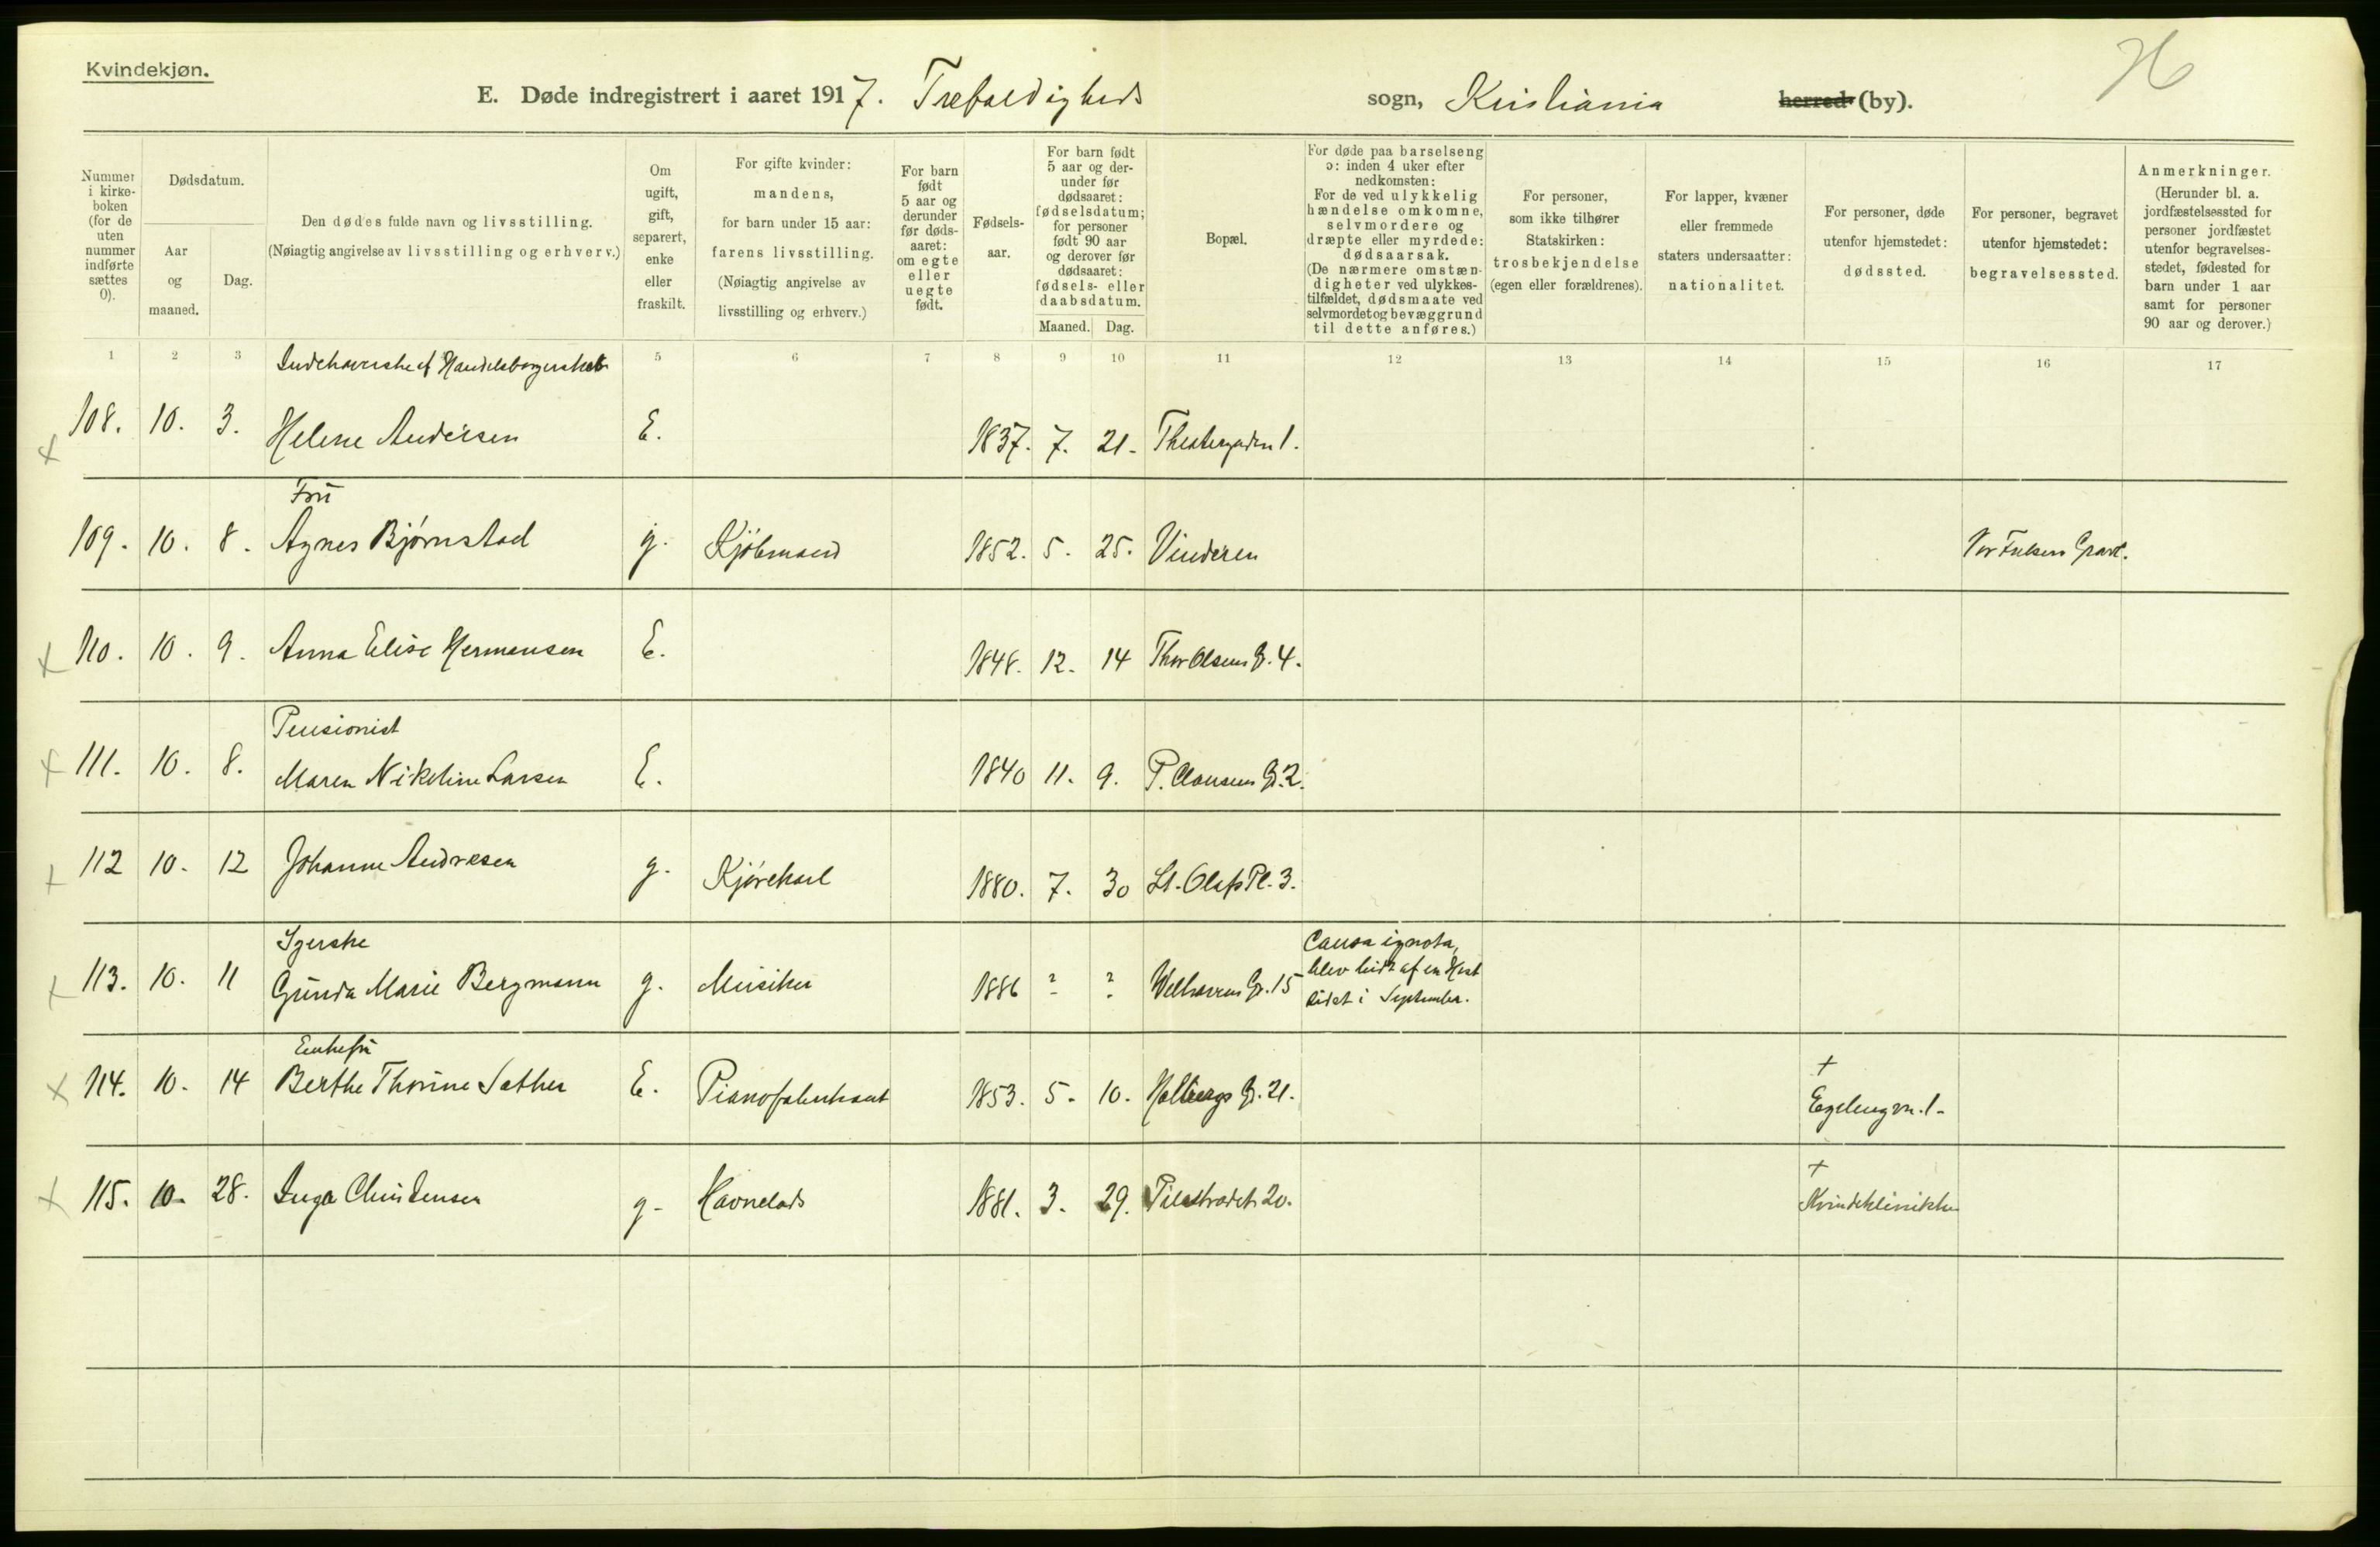 Kvindekjøn.
E. Døde indregistrert i aaret 1917. Trefoldigheds sogn, Kristiania herred (by).
Nummer i kirke-boken (for de uten nummer indførte sættes 0).
Dødsdatum.
Aar og maaned.
Dag.
Den dødes fulde navn og livsstilling.
(Nøiagtig angivelse av livsstilling og erhverv.)
Om ugift, gift, separert, enke eller fraskilt.
For gifte kvinder: mandens, for barn under 15 aar: farens livsstilling.
(Nøiagtig angivelse av livsstilling og erhverv.)
For barn født 5 aar og derunder før døds-aaret: om egte eller uegte født.
Fødsels-aar.
For barn født 5 aar og der-under før dødsaaret: fødselsdatum; for personer født 90 aar og derover før dødsaaret: fødsels- eller daabsdatum.
Maaned. Dag.
Bopæl.
For døde paa barselseng ɔ: inden 4 uker efter nedkomsten:
For de ved ulykkelig hændelse omkomne, selvmordere og dræpte eller myrdede: dødsaarsak.
(De nærmere omstæn-digheter ved ulykkes-tilfældet, dødsmaate ved selvmordet og bevæggrund til dette anføres.)
For personer, som ikke tilhører Statskirken: trosbekjendelse (egen eller forældrenes).
For lapper, kvæner eller fremmede staters undersaatter: nationalitet.
For personer, døde utenfor hjemstedet: dødssted.
For personer, begravet utenfor hjemstedet: begravelsessted.
Anmerkninger.
(Herunder bl. a. jordfæstelsessted for personer jordfæstet utenfor begravelses-stedet, fødested for barn under 1 aar samt for personer 90 aar og derover.)
1 2 3 5 6 7 8 9 10 11 12 13 14 15 16 17
Indehaverske af Handelsborgerskab
108. 10. 3. Helene Andersen E. 1837. 7. 21. Theatergaden 1.
Fru
109. 10. 8. Agnes Bjørnstad g. Kjøbmand 1852. 5. 25. Vinderen Vor Frelsers Gravl.
110. 10. 9. Anna Elise Hermansen E. 1848. 12. 14 Thor Olsens G. 4.
Pensionist
111. 10. 8. Maren Nikoline Larsen E. 1840 11. 9. P. Clausens G. 2.
112 10. 12 Johanne Andresen g. Kjørekarl 1880. 7. 30 St. Olafs Pl. 3.
Syerske
113. 10. 11 Gunda Marie Bergmann g. Musiker 1886 ? ? Welhavens G. 15 Causa ignota,
blev bidt af en Hest
sidst i September.
Enkefru
114. 10. 14 Berthe Thorine Sæther E. Pianofabrikant 1853. 5. 10. Holbergs G. 21. +
115. 10. 28. Inga Christensen g. Havnelods 1881. 3. 29. Pilestrædet 20. +
Kvindeklinikken